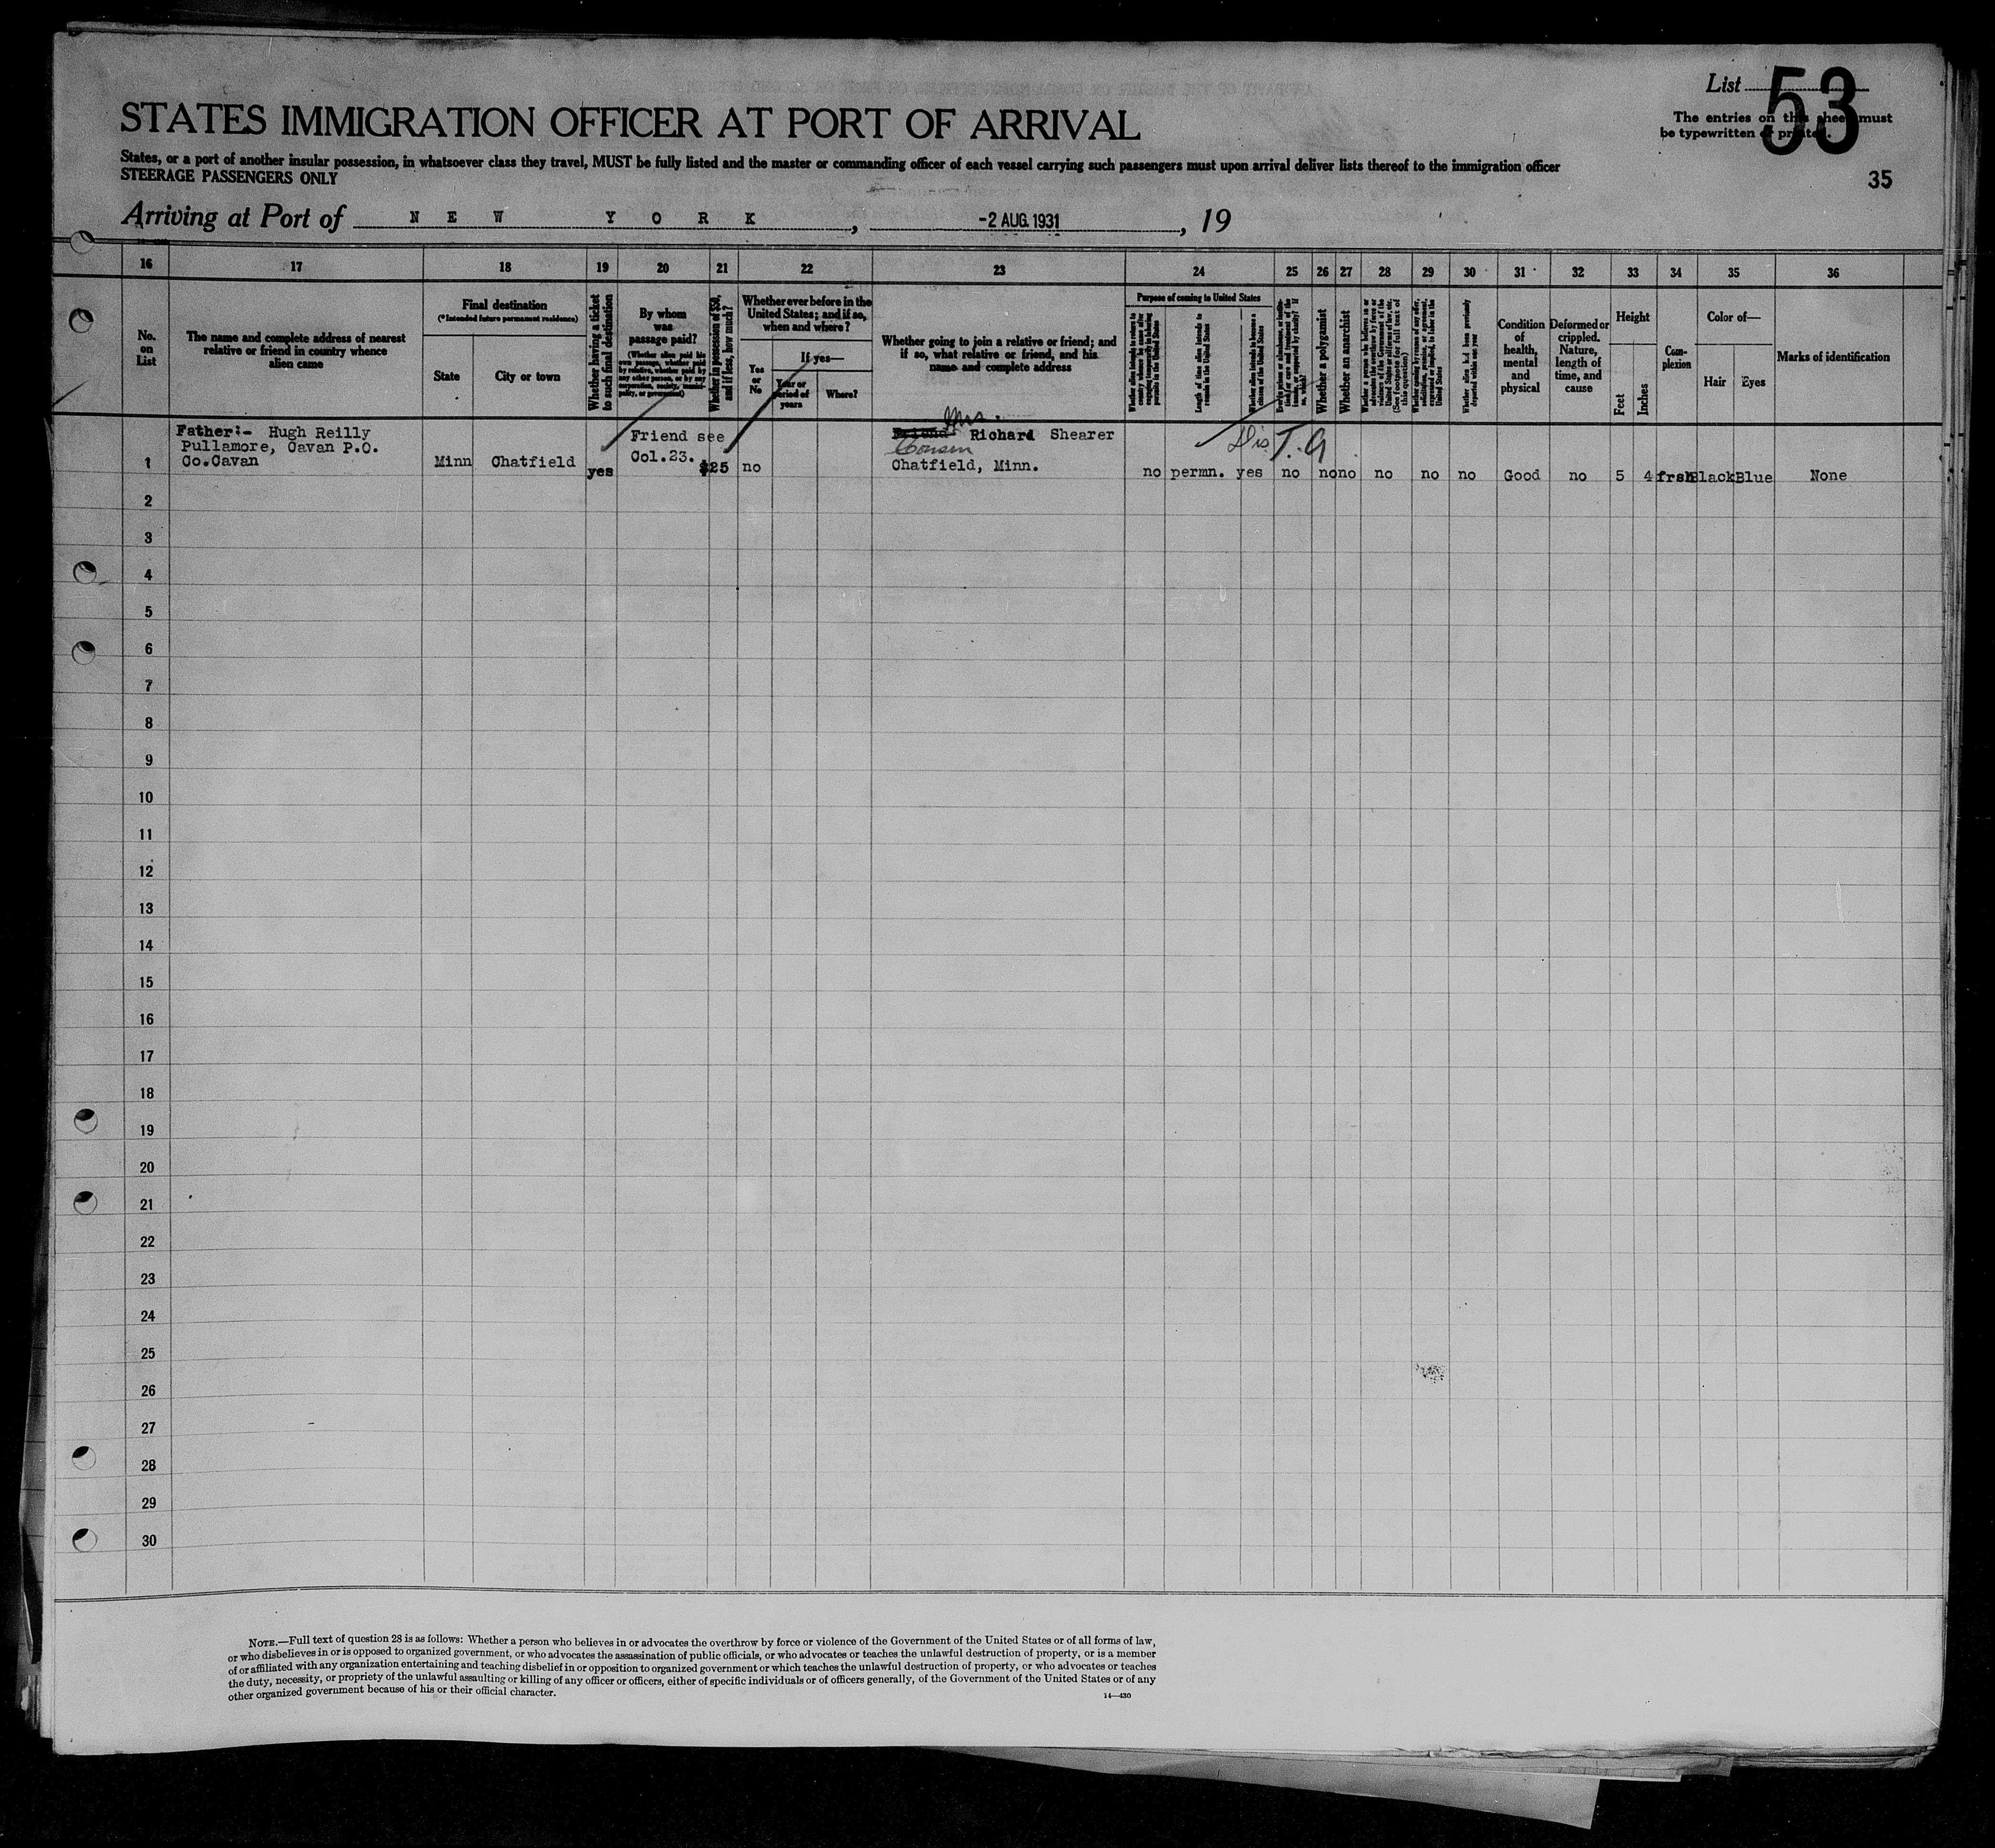 List 53
The entries on this sheet must
be typewritten or printed.
STATES IMMIGRATION OFFICER AT PORT OF ARRIVAL
States, or a port of another insular possession, in whatsoever class they travel, MUST be fully listed and the master or commanding officer of each vessel carrying such passengers must upon arrival deliver lists thereof to the immigration officer
STEERAGE PASSENGERS ONLY
35
Arriving at Port of NEW YORK, -2 AUG. 1931, 19
16 17 18 19 20 21 22 23 24 25 26 27 28 29 30 31 32 33 34 35 36
No.
on
List
The name and complete address of nearest
relative or friend in country whence
alien came
Final destination
(*Intended future permanent residence)
State
City or town
Whether having a ticket
to such final destination
By whom
was
passage paid?
(Whether alien paid his
own passage, whether paid
by relative, whether paid by
any other person, or by any
corporation, society, munici-
pality, or government)
Whether in possession of $50,
and if less, how much?
Whether ever before in the
United States; and if so,
when and where?
Yes
or
No
If yes—
Year or
period of
years
Where?
Whether going to join a relative or friend; and
if so, what relative or friend, and his
name and complete address
Purpose of coming to United States
Length of time alien intends to
remain in the United States
Whether alien intends to become a
citizen of the United States
Whether a polygamist
Whether an anarchist
Whether alien had been previously
deported within one year
Condition
of
health,
mental
and
physical
Deformed or
crippled.
Nature,
length of
time, and
cause
Height
Feet
Inches
Com-
plexion
Color of—
Hair
Eyes
Marks of identification
Father:- Hugh Reilly
Pullamore, Cavan P.O.
Co.Cavan
1
Minn
Chatfield
yes
Friend see
Col.23.
$25
no
Mrs.
Friend Richard Shearer
Cousin
Chatfield, Minn.
Dis T.G
no permn. yes no no no no no no Good no 5 4 frsh Black Blue None
2
3
4
5
6
7
8
9
10
11
12
13
14
15
16
17
18
19
20
21
22
23
24
25
26
27
28
29
30
NOTE.—Full text of question 28 is as follows: Whether a person who believes in or advocates the overthrow by force or violence of the Government of the United States or of all forms of law,
or who disbelieves in or is opposed to organized government, or who advocates the assassination of public officials, or who advocates or teaches the unlawful destruction of property, or is a member
of or affiliated with any organization entertaining and teaching disbelief in or opposition to organized government or which teaches the unlawful destruction of property, or who advocates or teaches
the duty, necessity, or propriety of the unlawful assaulting or killing of any officer or officers, either of specific individuals or of officers generally, of the Government of the United States or of any
other organized government because of his or their official character.
14—430